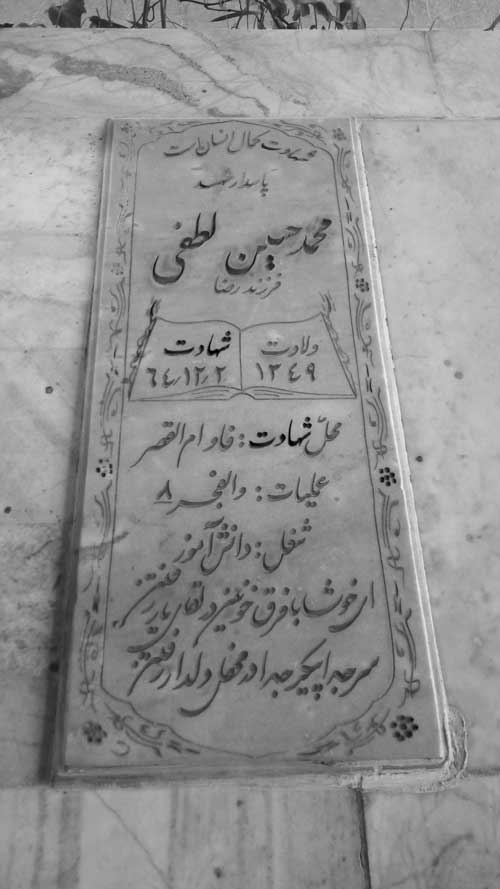 شهید روت کمال انسان است
پاسدار شهید
محمد حسین لطفی
فرزند رضا
ولادت
۱۳٤۹
شهادت
٦٤/۱۲/۲
محل شهادت: فاو ام القصر
عملیات: والفجر ۸
شغل: دانش آموز
ای خوشا با فرق خونین در لقای یار رفتن
سر جدا پیکر جدا در محفل دلدار رفتن